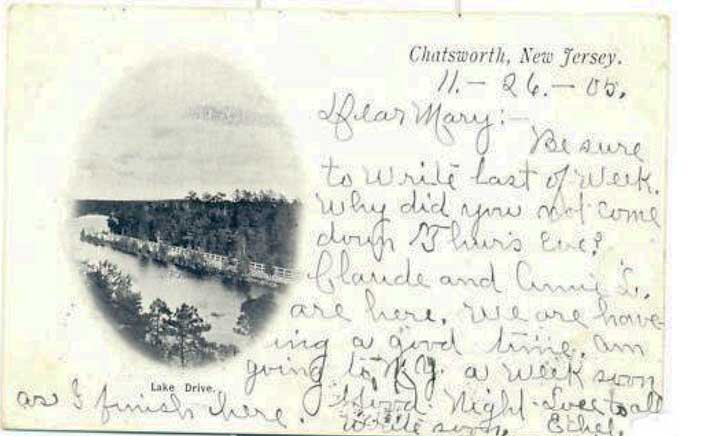 Chatsworth, New Jersey.
11.-26.-05.
Dear Mary:-
Be sure
to write last of week.
Why did you not come
down Thurs Eve?
Claude and Annie L.
are here. We are have-
ing a good time. am
going to N.Y. a week soon
as I finish here. Good Night - Love to all
Write soon. Ethel.
Lake Drive.